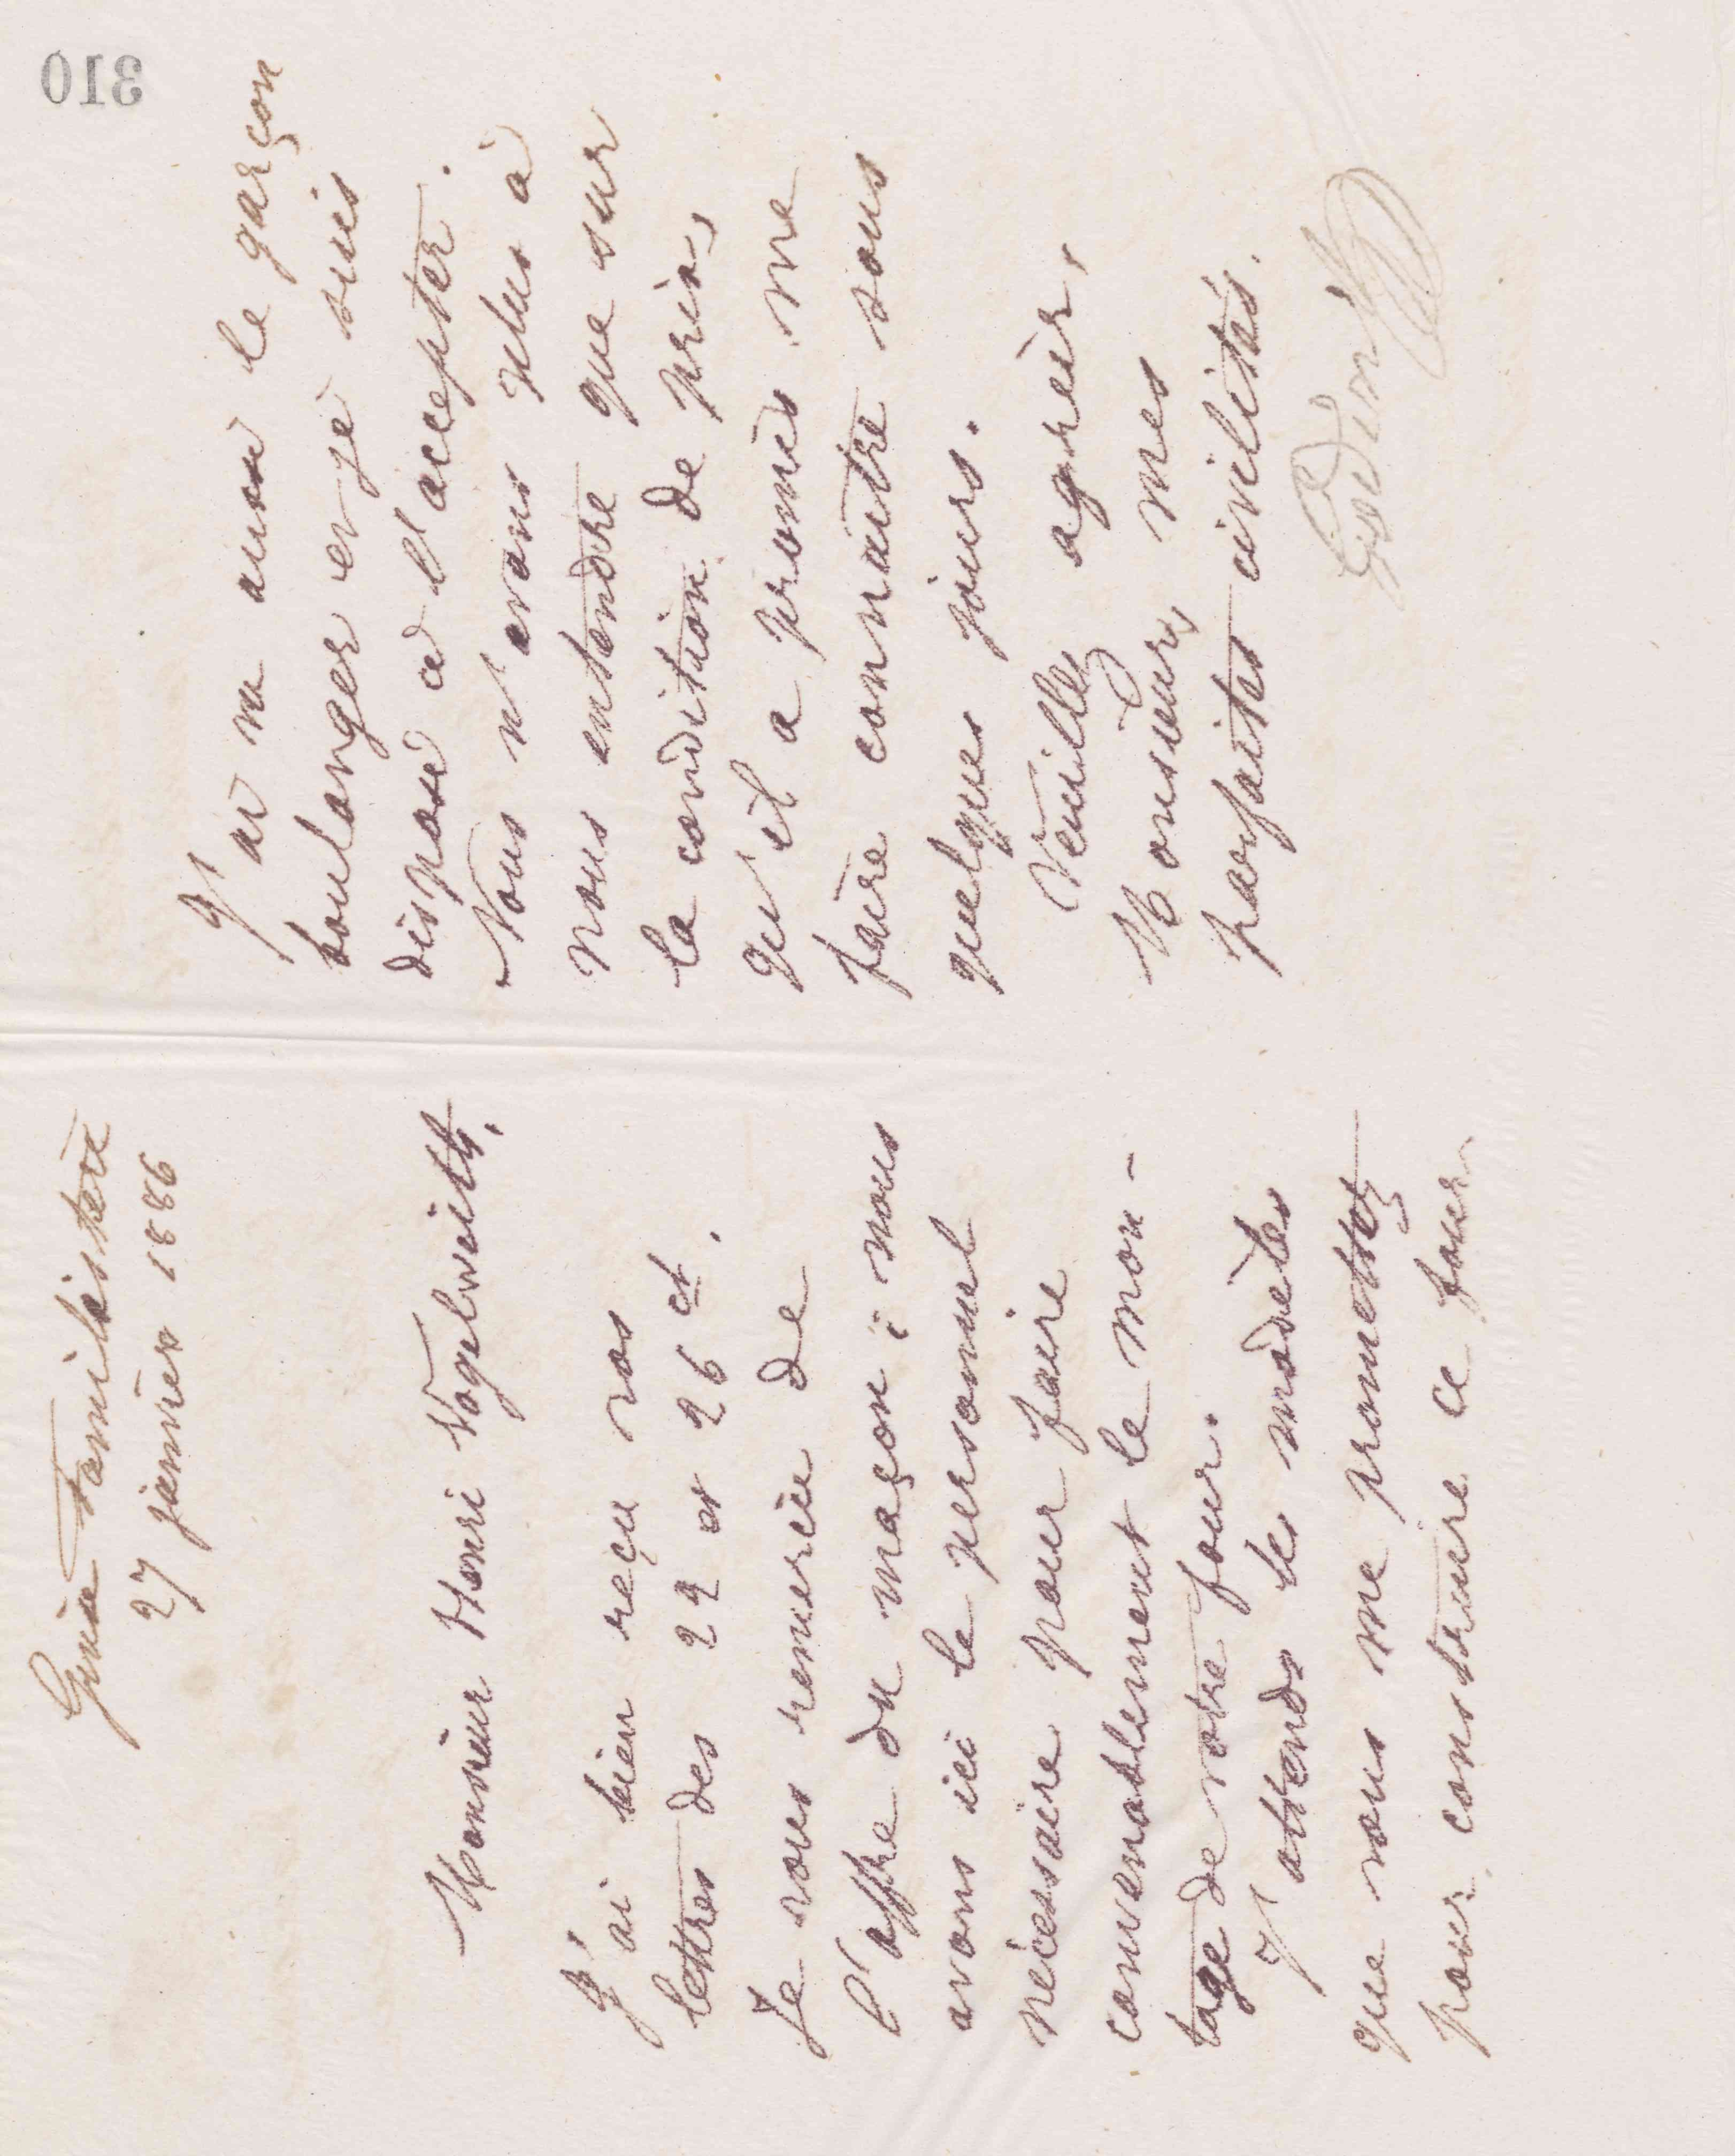 310
Guise Familistère
27 janvier 1886
Monsieur Henri Vogelweith,
J'ai bien reçu vos
lettres des 22 et 26 ct.
Je vous remercie de
l'offre du maçon ; nous
avons ici le personnel
nécessaire pour faire
convenablement le mon-
tage de votre four.
J'attends les modèles
que vous me promettez
pour construire ce four.
J'ai vu aussi le garçon
boulanger et je suis
disposé à l'accepter.
Nous n'avons plus à
nous entendre que sur
la condition de prix,
qu'il a promis me
faire connaître sous
quelques jours.
Veuillez agréer,
Monsieur, mes
parfaites civilités.
Godin